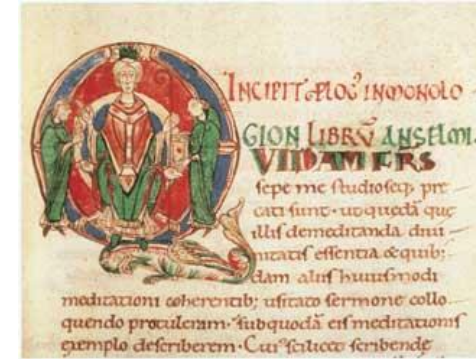 INCIPIT PLOG IN MONOLO
GION LIBRU ANSELMI.
UIDAM FRS
sepe me studioseq; pre
cati sunt. ut quedā que
illis de meditanda diui
nitatis essentia & quib;
dam aliis huiusmodi
meditationi coherentib; usitato sermone collo
quendo protuleram. sub quodā eis meditationis
exemplo describerem. Cui scilicet scribende